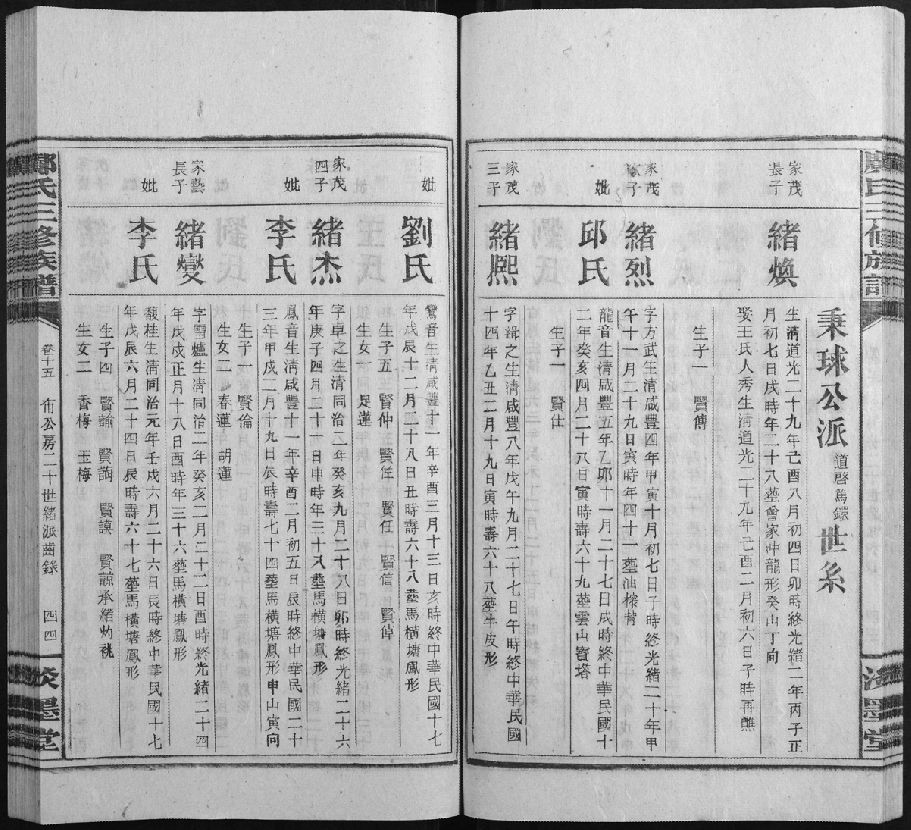 秉球公派 道啓爲鐸 世系
家茂長子 緒煥
生清道光二十九年己酉八月初四日卯時終光緒二年丙子正
月初七日戌時年二十八塟會家冲龍形癸山丁向
娶王氏人秀生清道光二十九年己酉二月初六日子時再醮
生子一 賢傳
家茂 子 緒烈
字方武生清咸豐四年甲寅十月初七日子時終光緒二十年甲
午十一月二十九日寅時年四十一塟油榨背
妣 邱氏
龍音生清咸豐五年乙卯十一月二十七日戌時終中華民國十
二年癸亥四月二十八日寅時壽六十九塟雲山寶塔
生子一 賢仕
家茂三子 緒熙
字緝之生清咸豐八年戊午九月二十七日午時終中華民國
十四年乙丑二月十九日寅時壽六十八塟牛皮形
妣 劉氏
鶯音生清咸豐十一年辛酉三月十三日亥時終中華民國十七
年戊辰十二月二十八日丑時壽六十八塟馬橫塘鳳形
生子五 賢仲 賢任 賢任 賢信 賢倬
生女一 吳蓮
家茂四子 緒杰
字卓之生清同治二年癸亥九月二十八日卯時終光緒二十六
年庚子四月二十一日申時年三十八塟馬橫塘鳳形
妣 李氏
鳳音生清咸豐十一年辛酉二月初五日辰時終中華民國二十
三年甲戌二月十九日辰時壽七十四塟馬橫塘鳳形申山寅向
生子一 賢倫
生女二 春蓮 胡蓮
家藝長子 緒燮
字雪爐生清同治二年癸亥二月二十二日酉時終光緒二十四
年戊戌正月十八日酉時年三十六塟馬橫塘鳳形
妣 李氏
馥桂生清同治元年壬戌六月二十六日辰時終中華民國十七
年戊辰六月二十四日辰時壽六十七塟馬橫塘鳳形
生子四 賢諭 賢謌 賢謨 賢諒承緒灼祧
生女二 香梅 玉梅
鄺氏三修族譜
卷十五 甫公房二十世緒派齒錄 四四
校墨堂